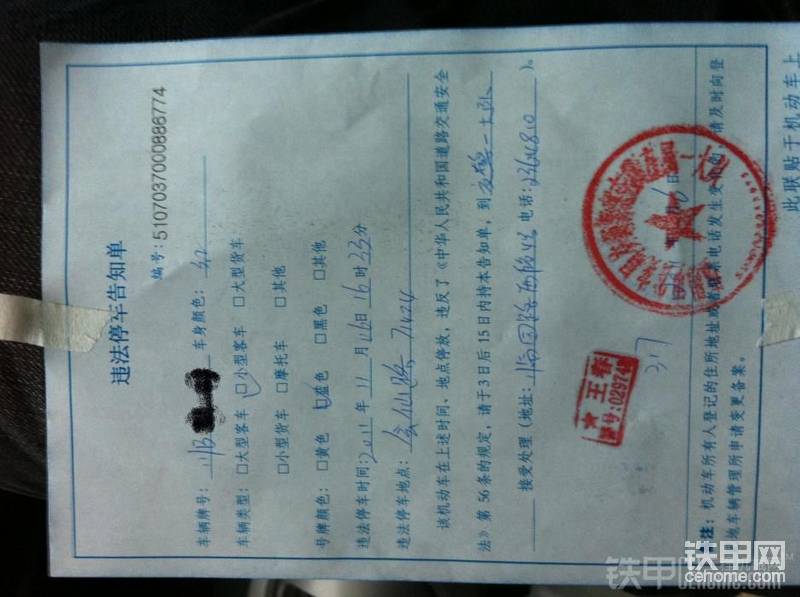 违法停车告知单
编号:5107037000886774
车辆牌号: 川B 车身颜色: 红
车辆类型: □大型客车 □小型客车 □大型货车
□小型货车 □摩托车 □其他
号牌颜色: □黄色 □蓝色 □黑色 □其他
违法停车时间:2011年11月16日16时33分
违法停车地点:
该机动车在上述时间、地点停放，违反了《中华人民共和国道路交通安全
法》第56条的规定，请于3日后15日内持本告知单，到 二大队
接受处理（地址: 电话: )。
317
★王春
警号:029748
备注: 机动车所有人登记的住所地址或者联系电话发生变化的，请及时向登
地车辆管理所申请变更备案。
此联贴于机动车上
铁甲网
cehome.com